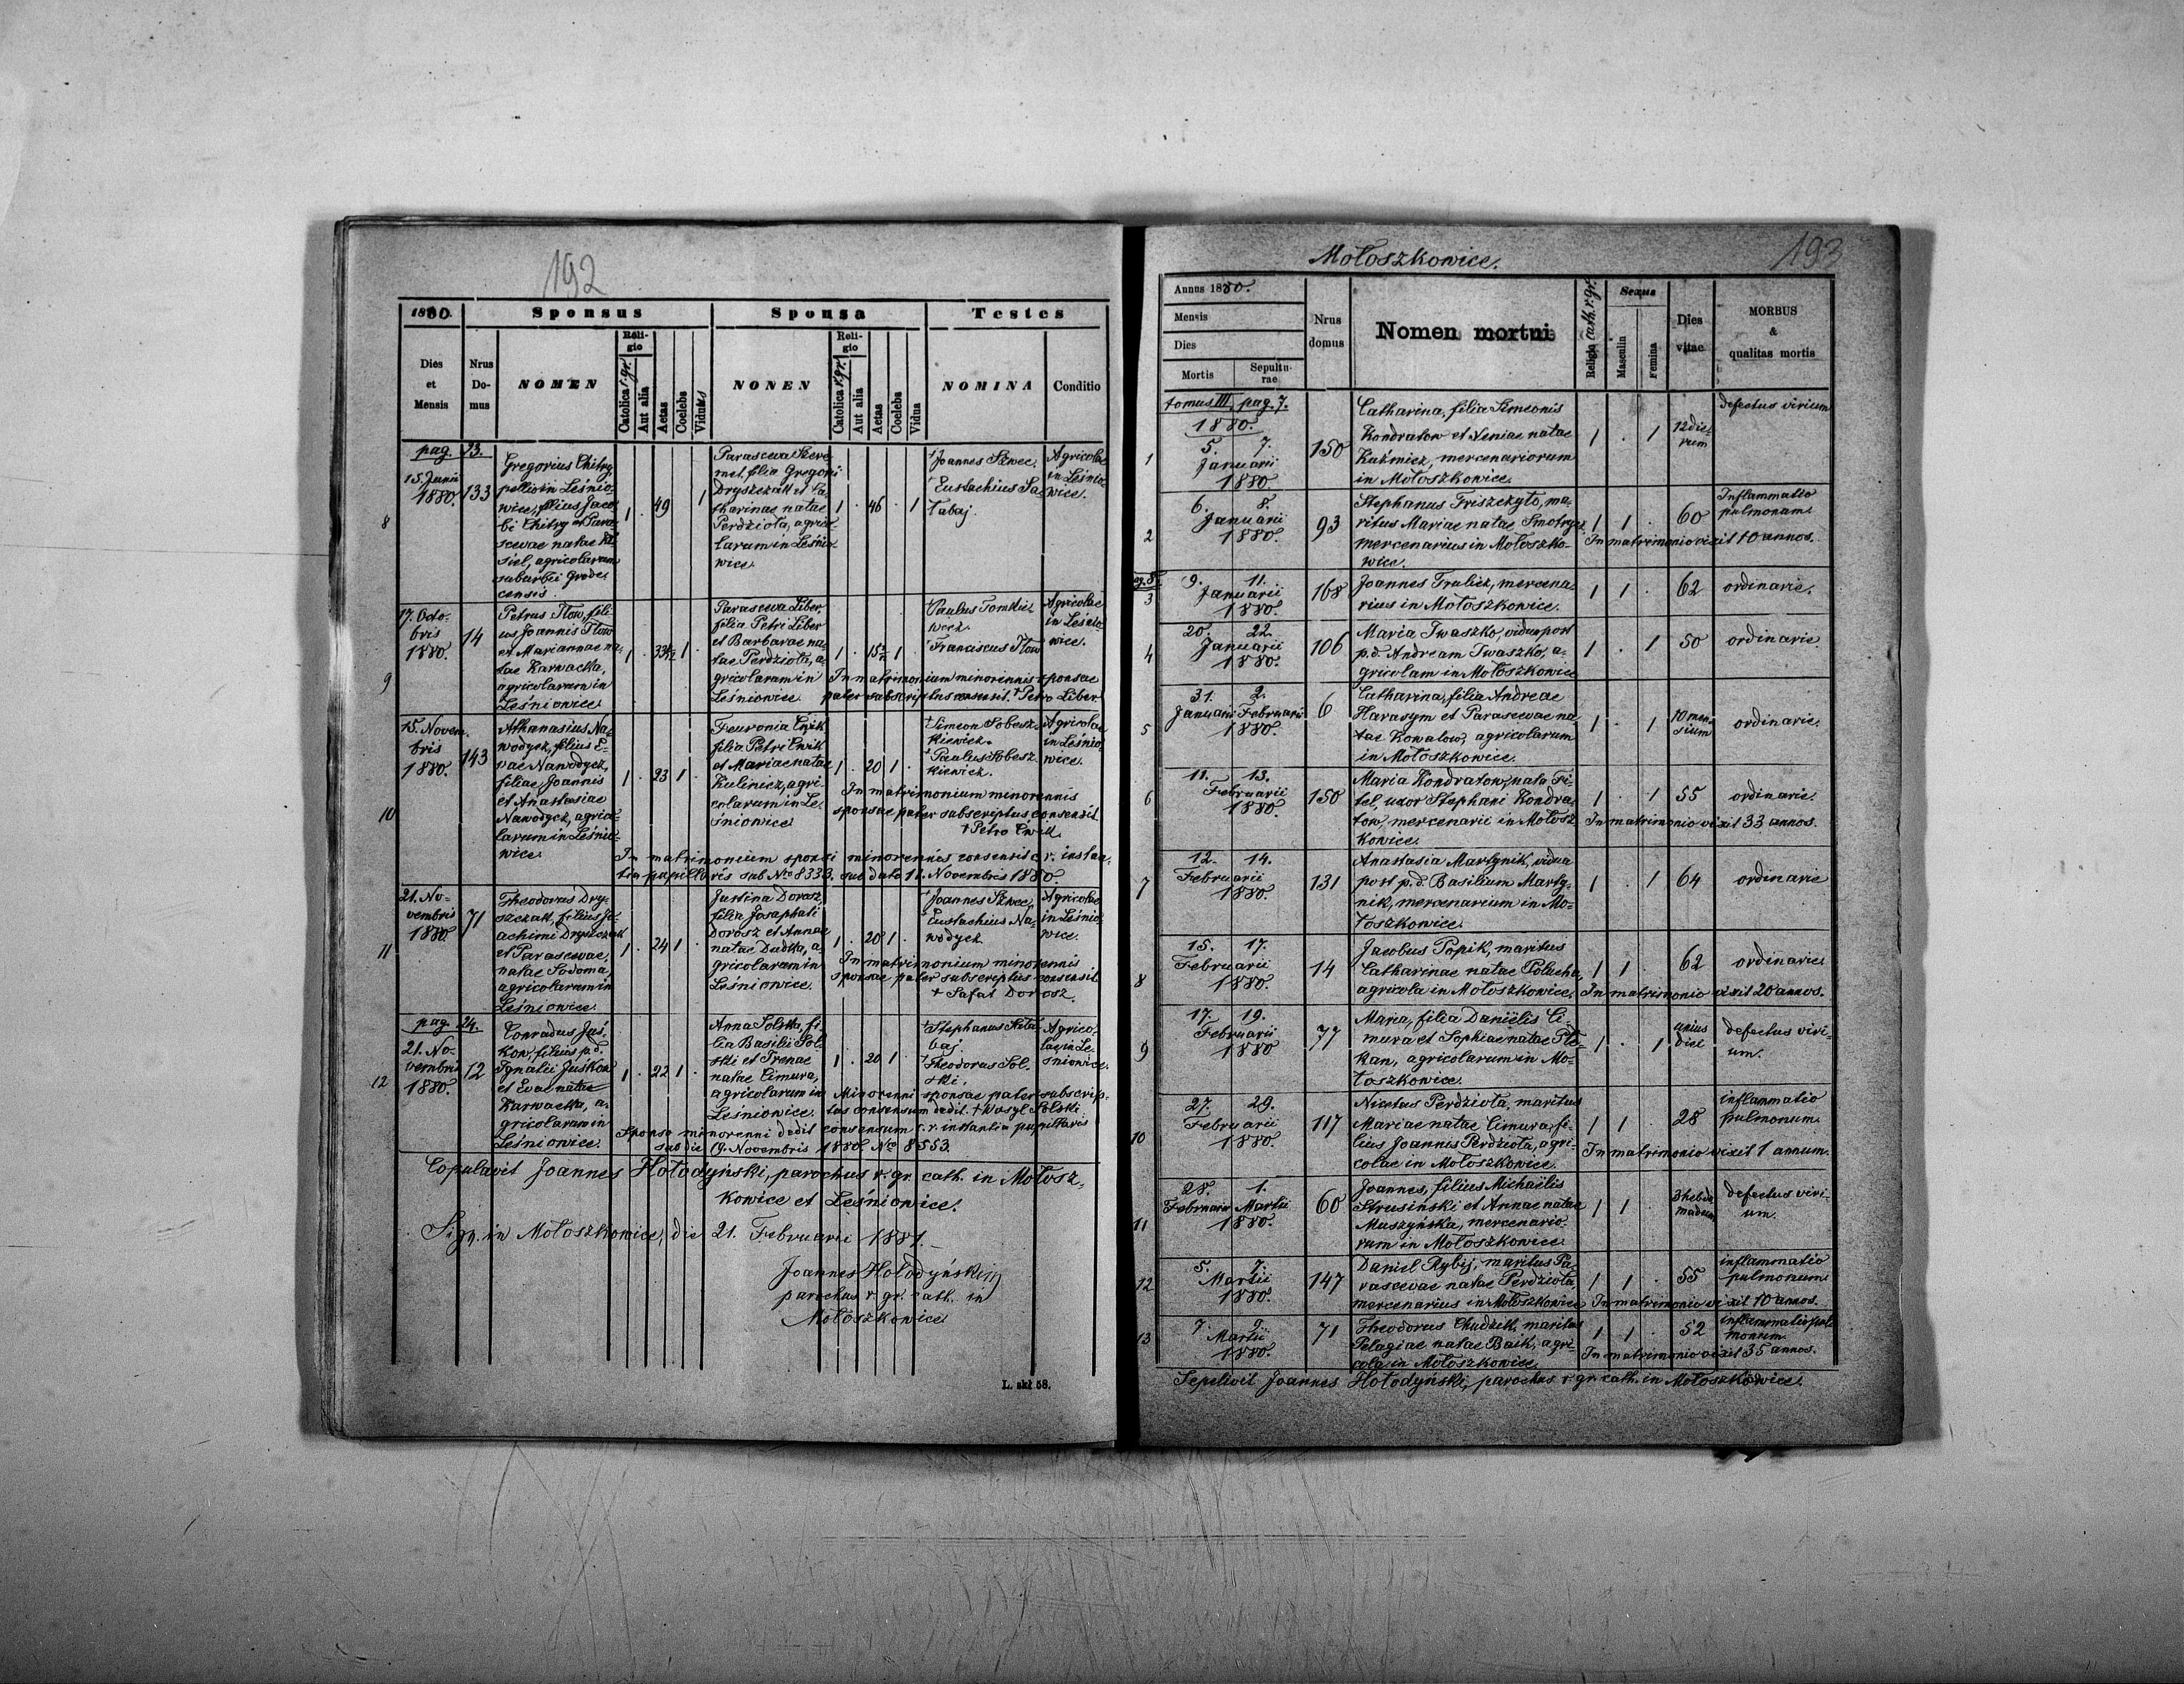 192
1880.
Sponsus
Sponsa
Testes
Dies
et
Mensis
Nrus
Do-
mus
NOMEN
Reli-
gio
Catolica r. gr.
Aut alia
Aetas
Coelebs
Viduus
NONEN
Reli-
gio
Catolica r. gr.
Aut alia
Aetas
Coelebs
Vidua
NOMINA
Conditio
pag. 23.
8
15. Junii
1880.
133
Gregorius Chitry,
pellio in Leśnio-
wice, filius Jaco-
bi Chitry et Para-
scevae natae
siel, agricolarum
suburbii Grode-
censis.
1 . 49 . 1
Parasceva
met, filia Gregorii
Dryszczak et Ca-
tharinae natae
Perdziota, agrico-
larum in Leśnio-
wice.
1 . 46 . 1
+Joannes Szwec.
+Eustachius Sa-
łabaj.
Agricolae
in Leśnio-
wice.
9
17. Octo-
bris
1880.
14
Petrus Tłow, fili-
us Joannis Tłow
et Mariannae na-
tae Karwacka,
agricolarum in
Leśniowice.
1 . 1 .
Parasceva Liber,
filia Petri Liber
et Barbarae na-
tae Perdziota, a-
gricolarum in
Leśniowice.
1 . 1 .
+Paulus Tomkie-
wicz.
+Franciscus Tłow
Agricolae
in Leśnio-
wice.
In matrimonium minorennis sponsae
pater subscriptus consensit. + Petro Liber.
10
15. Novem-
bris
1880.
143
Athanasius Na-
wodycz, filius E-
vae Nawodycz,
filiae Joannis
et Anastasiae
Nawodycz, agrico-
larum in Leśnio-
wice.
1 . 23 1 .
Feuronia Cwik,
filia Petri Cwik
et Mariae natae
Kulinicz, agri-
colarum in Le-
śniowice.
1 . 20 1 .
+Simeon Sobesz-
kiewicz.
+Paulus Sobesz-
kiewicz.
Agricolae
in Leśnio-
wice.
In matrimonium minorennis
sponsae pater subscriptus consensit.
+ Petro Cwik
In matrimonium sponsi minorennis consensit c. r. instan-
tia pupillaris sub Nro 8333. sub dato 12. Novembris 1880
11
21. No-
vembris
1880.
71
Theodorus Dry-
szczak, filius Jo-
achimi Dryszczak
et Parascevae,
natae Sodoma,
agricolarum in
Leśniowice.
1 . 24 1 .
Justina Dorosz,
filia Josaphati
Dorosz et Annae
natae Dudka, a-
gricolarum in
Leśniowice.
1 . 20 1 .
+Joannes Szwec,
+Eustachius Na-
wodycz.
Agricolae
in Leśnio-
wice.
In matrimonium minorennis
sponsae pater subscriptus consensit
+ Safat Dorosz.
pag. 24.
12
21. No-
vembris
1880.
12
Conradus Juś-
kow, filius p. d.
Ignatii Juskow
et Evae natae
Karwacka, a-
gricolarum in
Leśniowice.
1 . 22 1 .
Anna Solska, fi-
lia Basilii Sol-
ski et Irenae
natae Cimura,
agricolarum in
Leśniowice.
1 . 20 1 .
+Stephanus Sała-
baj.
+Theodorus Sol-
ski.
Agrico-
lae in Le-
śniowice.
Minorenni sponsae pater subscrip-
tus consensum dedit. + Wasyl Solski
Sponso minorenni dedit consensum c. r. instantia pupillaris
sub die 19. Novembris 1880. No 8553.
Copulavit Joannes Hołodyński, parochus r. gr. cath. in Mołosz-
kowice et Leśniowice.
Sign. in Mołoszkowice, die 21. Februarii 1881.
Joannes Hołodyński
parochus r. gr. cath. in
Mołoszkowice
L. skł 58.
Mołoszkowice.
193
Annus 1880.
Mensis
Dies
Mortis
Sepultu-
rae
Nrus
domus
Nomen mortui
Religio cath. r. gr.
Sexus
Masculin
Femina
Dies
vitae
MORBUS
&
qualitas mortis
tomus III. pag. 7.
1880.
1
5. 7.
Januarii
1880.
150
Catharina, filia Simeonis
Kondratow et Xeniae natae
Kuśmicz, mercenariorum
in Mołoszkowice.
1 . 1
12 die-
rum
defectus virium
2
6. 8.
Januarii
1880.
93
Stephanus Triszczyło, ma-
ritus Mariae natae Smotrycz,
mercenarius in Mołoszko-
wice.
1 1 .
60
Inflammatio
pulmonum.
In matrimonio vixit 10 annos.
pag. 8.
3
9. 11.
Januarii
1880.
168
Joannes Trulicz, mercena-
rius in Mołoszkowice.
1 1 .
62
ordinarie.
4
20. 22.
Januarii
1880.
106
Maria Iwaszko, vidua post
p. d. Andream Iwaszko, a-
gricolam in Mołoszkowice
1 . 1
50
ordinarie.
5
31. 2.
Januarii Februarii
1880.
6
Catharina, filia Andreae
Harasym et Parascevae na-
tae Kowalow, agricolarum
in Mołoszkowice.
1 . 1
10 men-
sium
ordinarie.
6
11. 13.
Februarii
1880.
150
Maria Kondratow, nata Fi-
tel, uxor Stephani Kondra-
tow, mercenarii in Mołosz-
kowice.
1 . 1
55
ordinarie.
In matrimonio vixit 33 annos.
7
12. 14.
Februarii
1880.
131
Anastasia Martynik, vidua
post p. d. Basilium Marty-
nik, mercenarium in Mo-
łoszkowice.
1 . 1
64
ordinarie
8
15. 17.
Februarii
1880.
14
Jacobus Popik, maritus
Catharinae natae Polucha,
agricola in Mołoszkowice.
1 1 .
62
ordinarie
In matrimonio vixit 20 annos.
9
17. 19.
Februarii
1880
77
Maria, filia Daniëlis Ci-
mura et Sophiae natae Ple-
kan, agricolarum in Mo-
łoszkowice.
1 . 1
unius
diei
defectus viri-
um.
10
27. 29.
Februarii
1880
117
Nicetas Perdziota, maritus
Mariae natae Cimura, fi-
lius Joannis Perdziota, agri-
colae in Mołoszkowice.
1 1 .
28
inflammatio
pulmonum.
In matrimonio vixit 1 annum.
11
28. 1.
Februarii Martii
1880.
60
Joannes, filius Michaëlis
Strusiński et Annae natae
Muszyńska, mercenario-
rum in Mołoszkowice.
1 1 .
3 hebdo-
madum
defectus viri-
um.
12
5. 7.
Martii
1880.
147
Daniel Rybij, maritus Pa-
rascevae natae Perdziota,
mercenarius in Mołoszkowice
1 1 .
55
inflammatio
pulmonum.
In matrimonio vixit 10 annos.
13
7. 9.
Martii
1880.
71
Theodorus Chudzik, maritus
Pelagiae natae Baik, agri-
cola in Mołoszkowice.
1 1 .
52
inflammatio pul-
monum.
In matrimonio vixit 35 annos.
Sepelivit Joannes Hołodyński, parochus r. gr. cath. in Mołoszkowice.